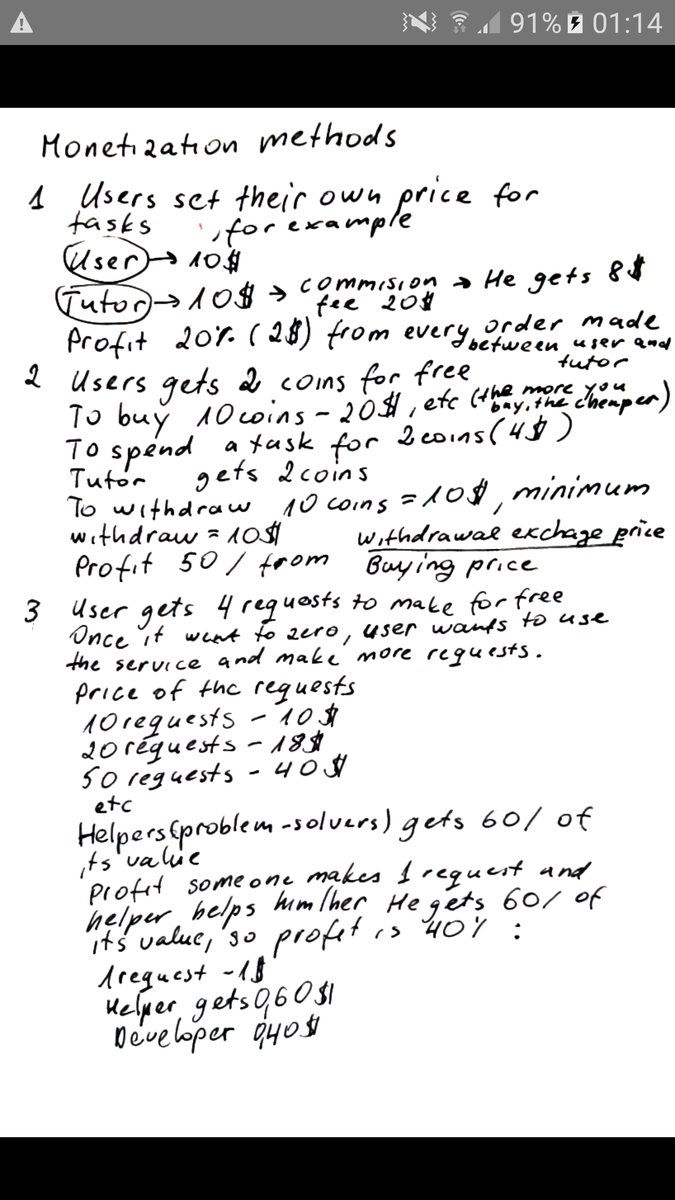 91% 01:14
Monetization methods
1 Users set their own price for
tasks , for example
User → 10$
Tutor → 10$ → commision fee 20$ → He gets 8$
Profit 20% (2$) from every order made between user and tutor
2 Users gets 2 coins for free
To buy 10 coins - 20$, etc (the more you buy, the cheaper)
To spend a task for 2 coins (4$)
Tutor gets 2 coins
To withdraw 10 coins = 10$, minimum
withdraw = 10$ withdrawal exchage price
Profit 50/ from Buying price
3 User gets 4 requests to make for free
Once it went to zero, user wants to use
the service and make more requests.
Price of the requests
10 requests - 10$
20 requests - 18$
50 requests - 40$
etc
Helpers(problem-solvers) gets 60/ of
its value
Profit someone makes 1 request and
helper helps him/her He gets 60/ of
its value, so profit is 40% :
1 request - 1$
Helper gets 0,60$
Developer 0,40$